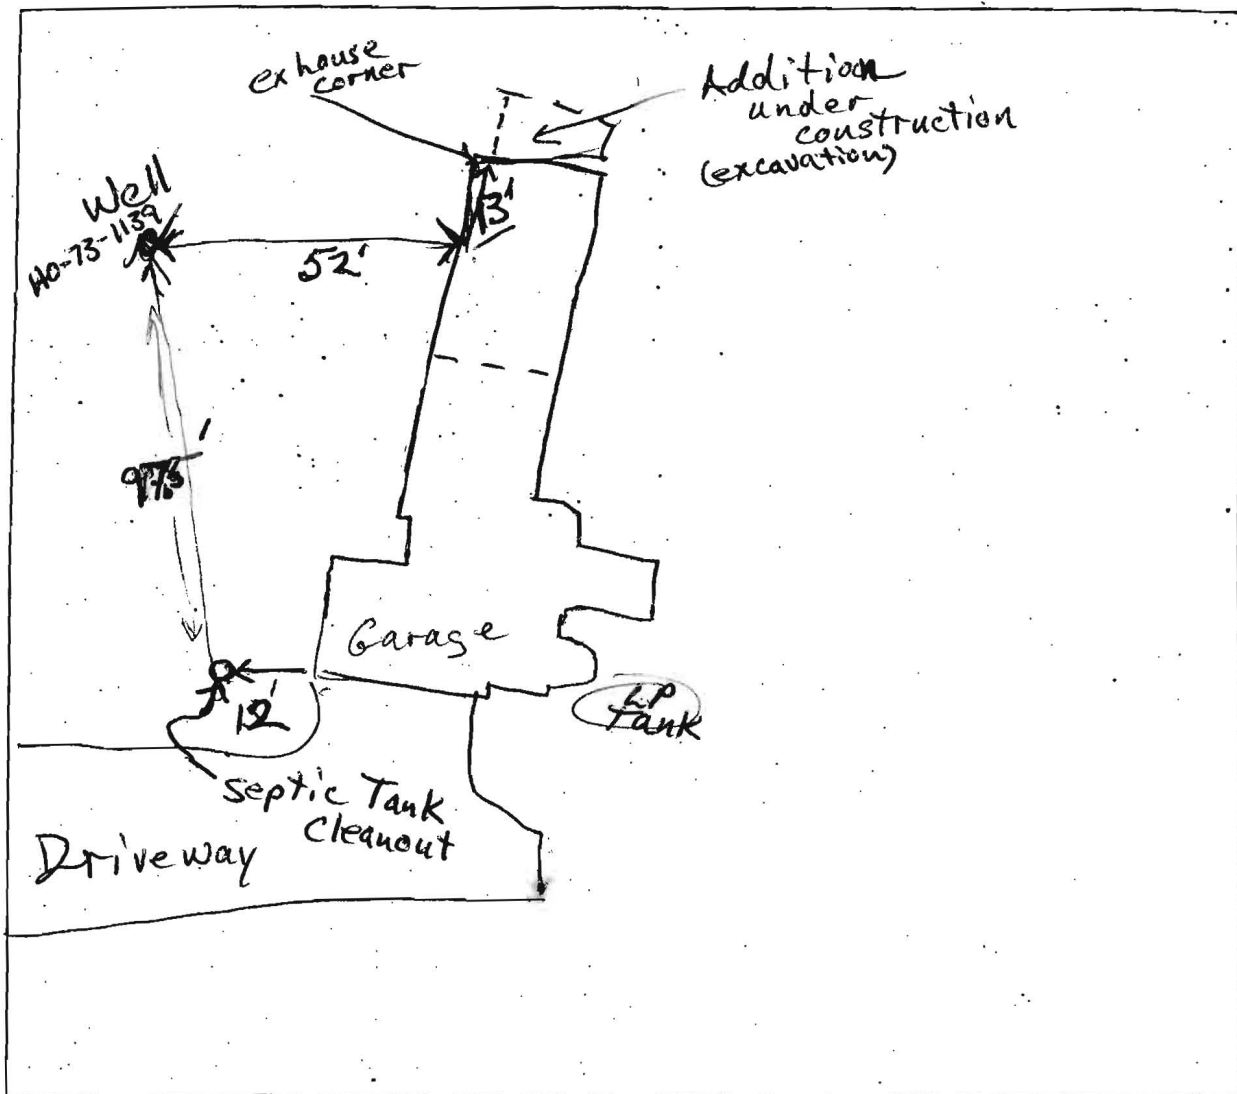 ex house
corner
Addition
under
construction
(excavation)
Well
HO-73-1139
13'
52'
Garage
LP
Tank
12'
Septic Tank
Cleanout
Driveway